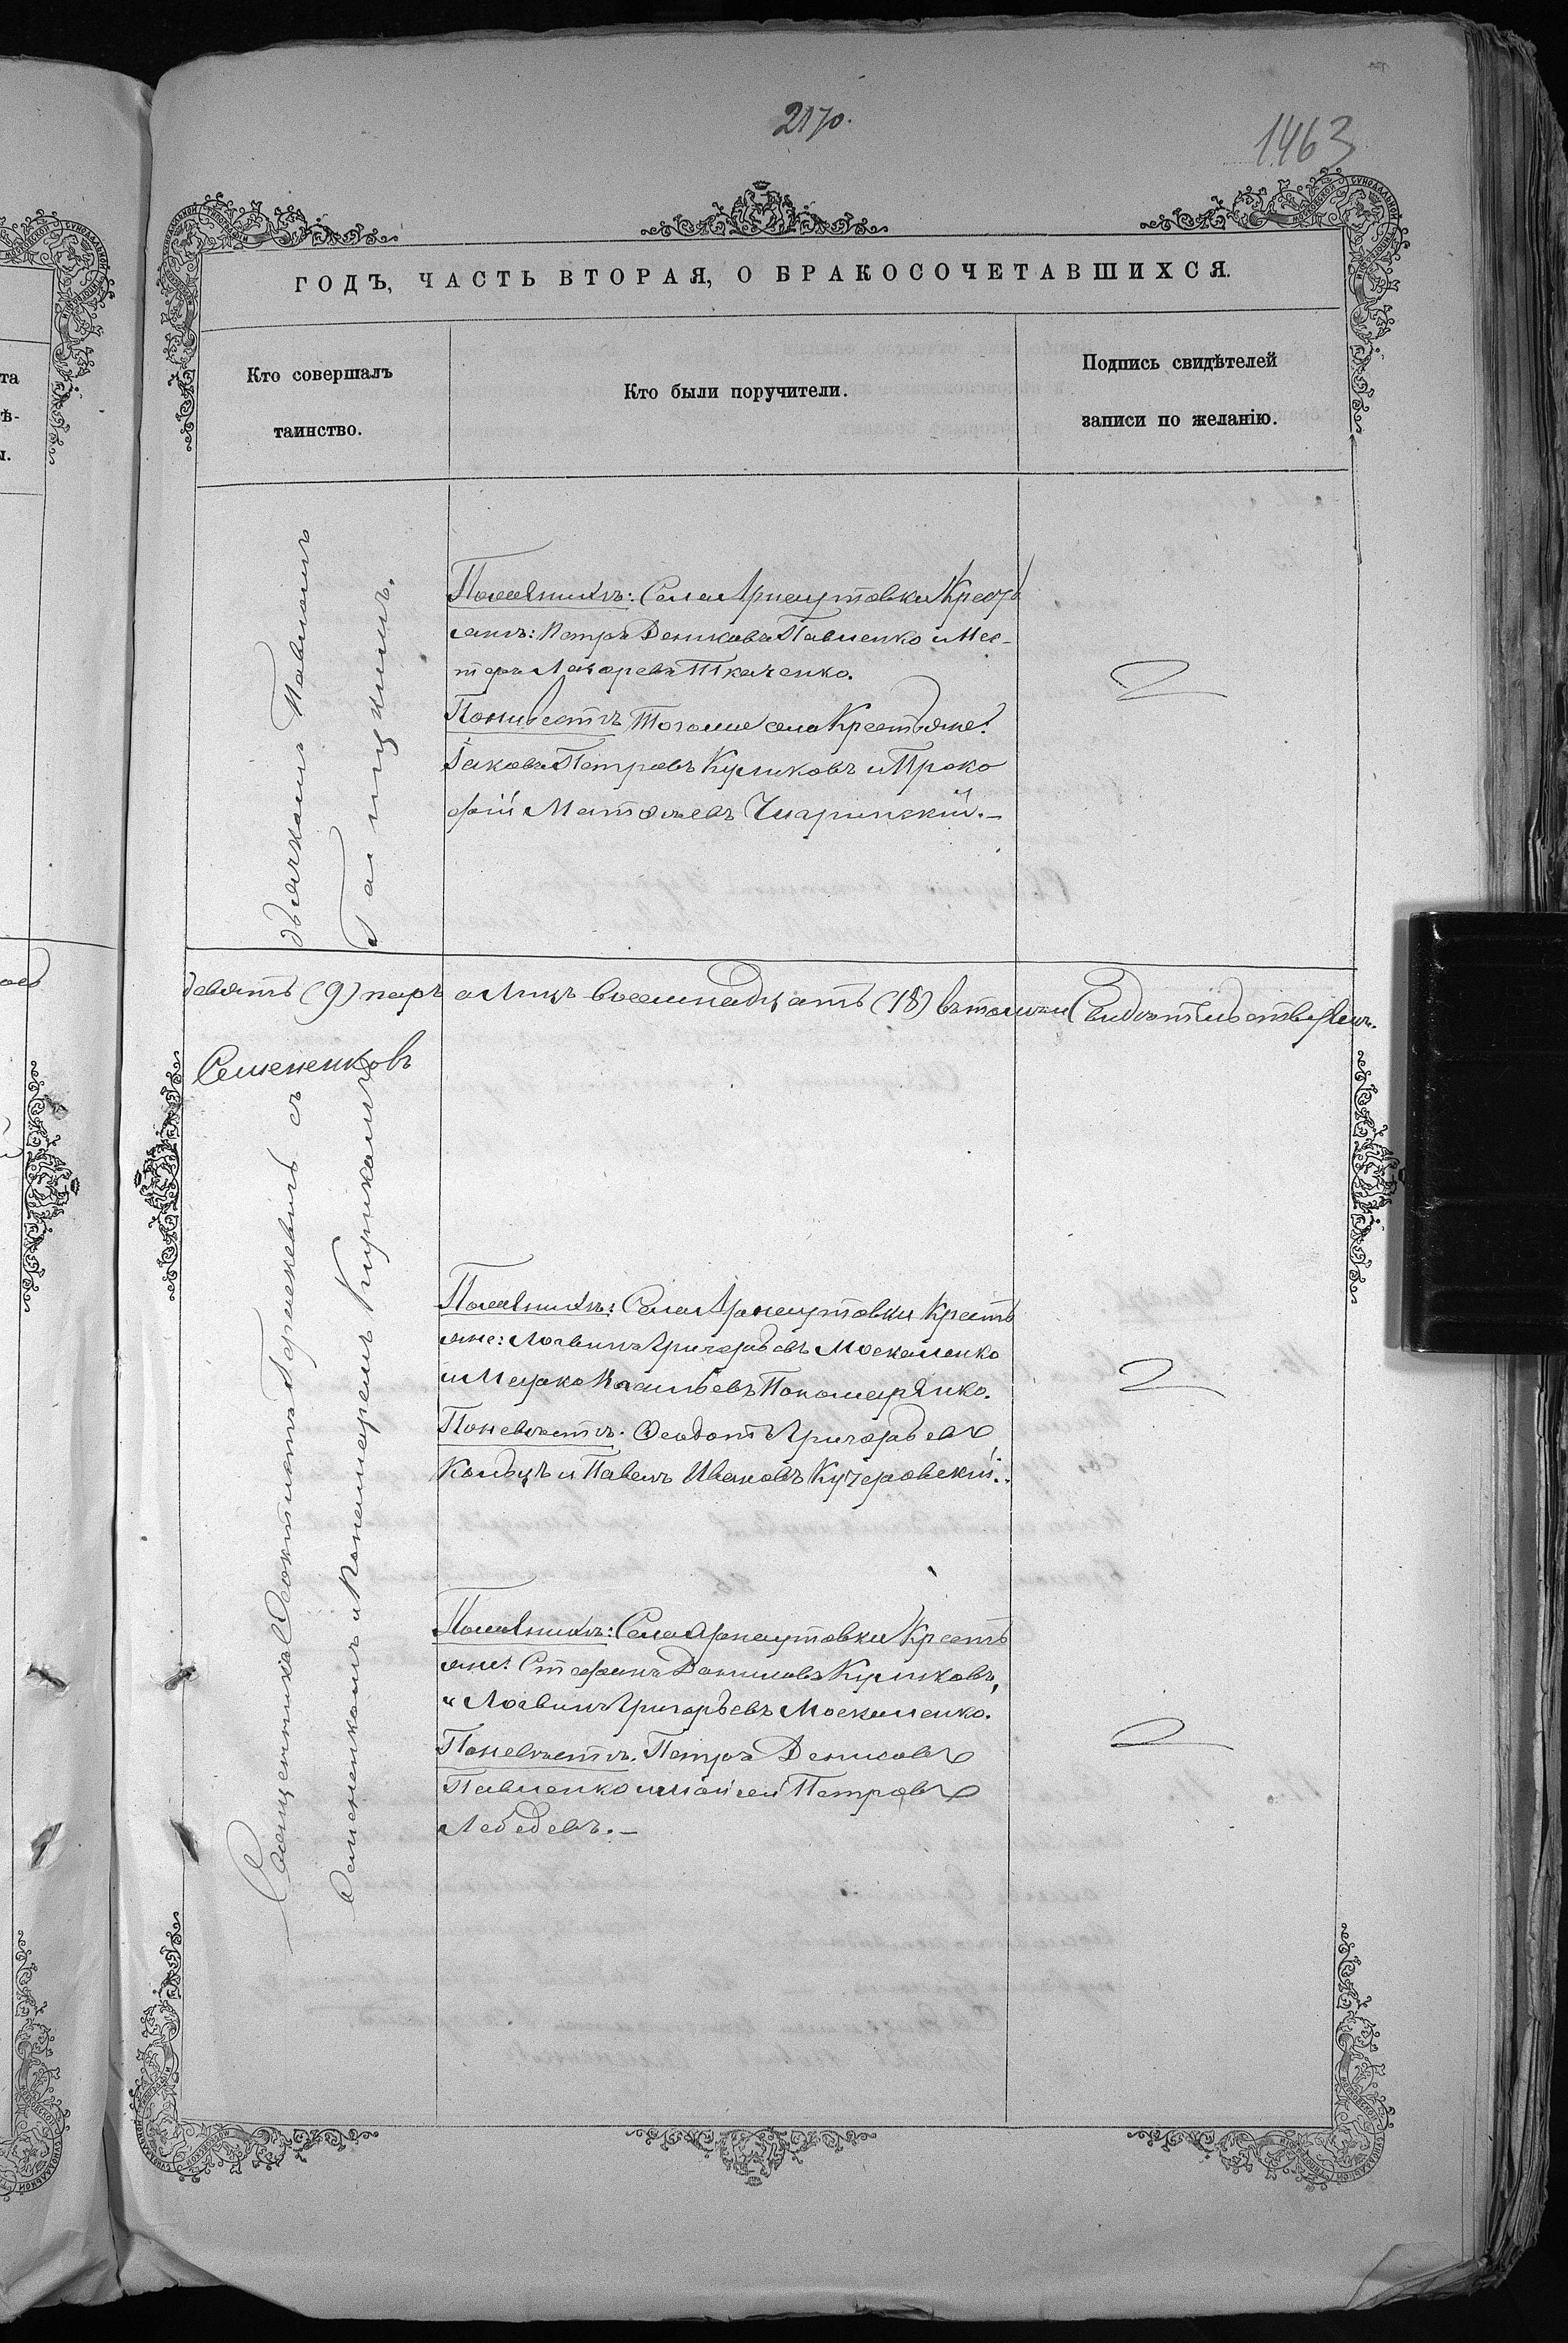 2170.
1463
ГОДЪ, ЧАСТЬ ВТОРАЯ, О БРАКОСОЧЕТАВШИХСЯ.
Кто совершалъ
таинство.
Кто были поручители.
Подпись свидѣтелей
записи по желанію.
дьячкомъ Павломъ
Галицкимъ.
По женихѣ: Села Арнаутовки Кресть
яне: Петръ Денисовъ Павленко и Нес-
теръ Лазаревъ Ткаченко.
По невѣстѣ Тогоже села Крестьяне:
Іаковъ Петровъ Куликовъ и Проко
фій Матѳѣевъ
девять (9) паръ а лицъ восемнадцать (18) въ томъ и Свидѣтельствуемъ.
Семененковъ
Священникъ Ѳеоктистъ Герасевичъ съ
и Пономаремъ
По женихѣ: Села Арнаутовки Кресть
яне: Логвинъ Григорьевъ Москаленко
и Марко Васильевъ Пономаренко.
По невѣстѣ: Ѳеодотъ Григорьевъ
и Павелъ Ивановъ Кучеровскій.
По женихѣ: Села Арнаутовки Кресть
яне: Стефанъ Даниловъ Куликовъ,
и Логвинъ Григорьевъ Москаленко.
По невѣстѣ: Петръ Денисовъ
Павленко и Моисей Петровъ
Лебедевъ.